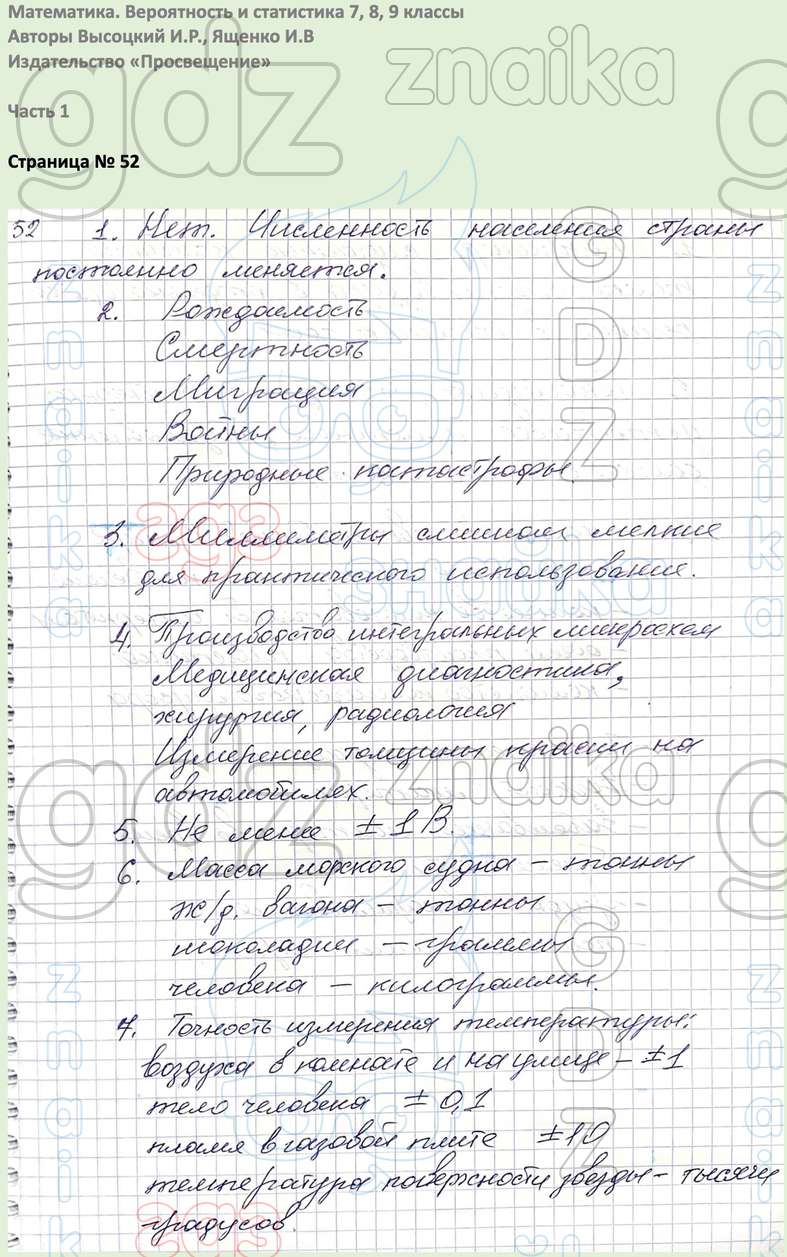 Математика. Вероятность и статистика 7, 8, 9 классы
Авторы Высоцкий И.Р., Ященко И.В
Издательство «Просвещение»
Часть 1
Страница № 52
52 1. Нет. Численность населения страны
постоянно меняется.
2. Рождаемость
Смертность
Миграция
Войны
Природные катастрофы
3. Миллиметры слишком мелкие
для практического использования.
4. Производство интегральных микросхем
Медицинская диагностика,
хирургия, радиология
Измерение толщины краски на
автомобилях.
5. Не менее ± 1 В.
6. Масса морского судна – тонны
ж/д. вагона – тонны
шоколадки – граммы
человека – килограммы.
7. Точность измерения температуры:
воздуха в комнате и на улице – ±1
тело человека ± 0,1
пламя в газовой плите ±10
температура поверхности звезды – тысячи
градусов.
gdz
znaika
GDZ
знайка
гдз